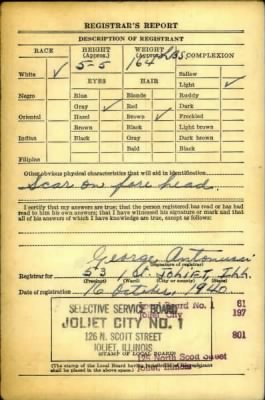 REGISTRAR'S REPORT
DESCRIPTION OF REGISTRANT
RACE HEIGHT (Approx.) WEIGHT (Approx.) COMPLEXION
5-5 164 LBS.
White ✓ Sallow
EYES HAIR Light ✓
Negro Blue Blonde Ruddy
Gray ✓ Red Dark
Oriental Hazel Brown ✓ Freckled
Brown Black Light brown
Indian Black Gray Dark brown
Bald Black
Filipino
Other obvious physical characteristics that will aid in identification
Scar on fore head.
I certify that my answers are true; that the person registered has read or has had
read to him his own answers; that I have witnessed his signature or mark and that
all of his answers of which I have knowledge are true, except as follows:
George Antonucci
(Signature of registrar)
Registrar for 53 JOLIET, Ill.
(Precinct) (Ward) (City or county) (State)
Date of registration 16 October, 1940
SELECTIVE SERVICE BOARD
JOLIET CITY NO. 1
126 N. SCOTT STREET
JOLIET, ILLINOIS
Board No. 1 61
Joliet City 197
801
125 North Scott Street
STAMP OF LOCAL BOARD
(The stamp of the Local Board having jurisdiction of the registrant
shall be placed in the above space.)